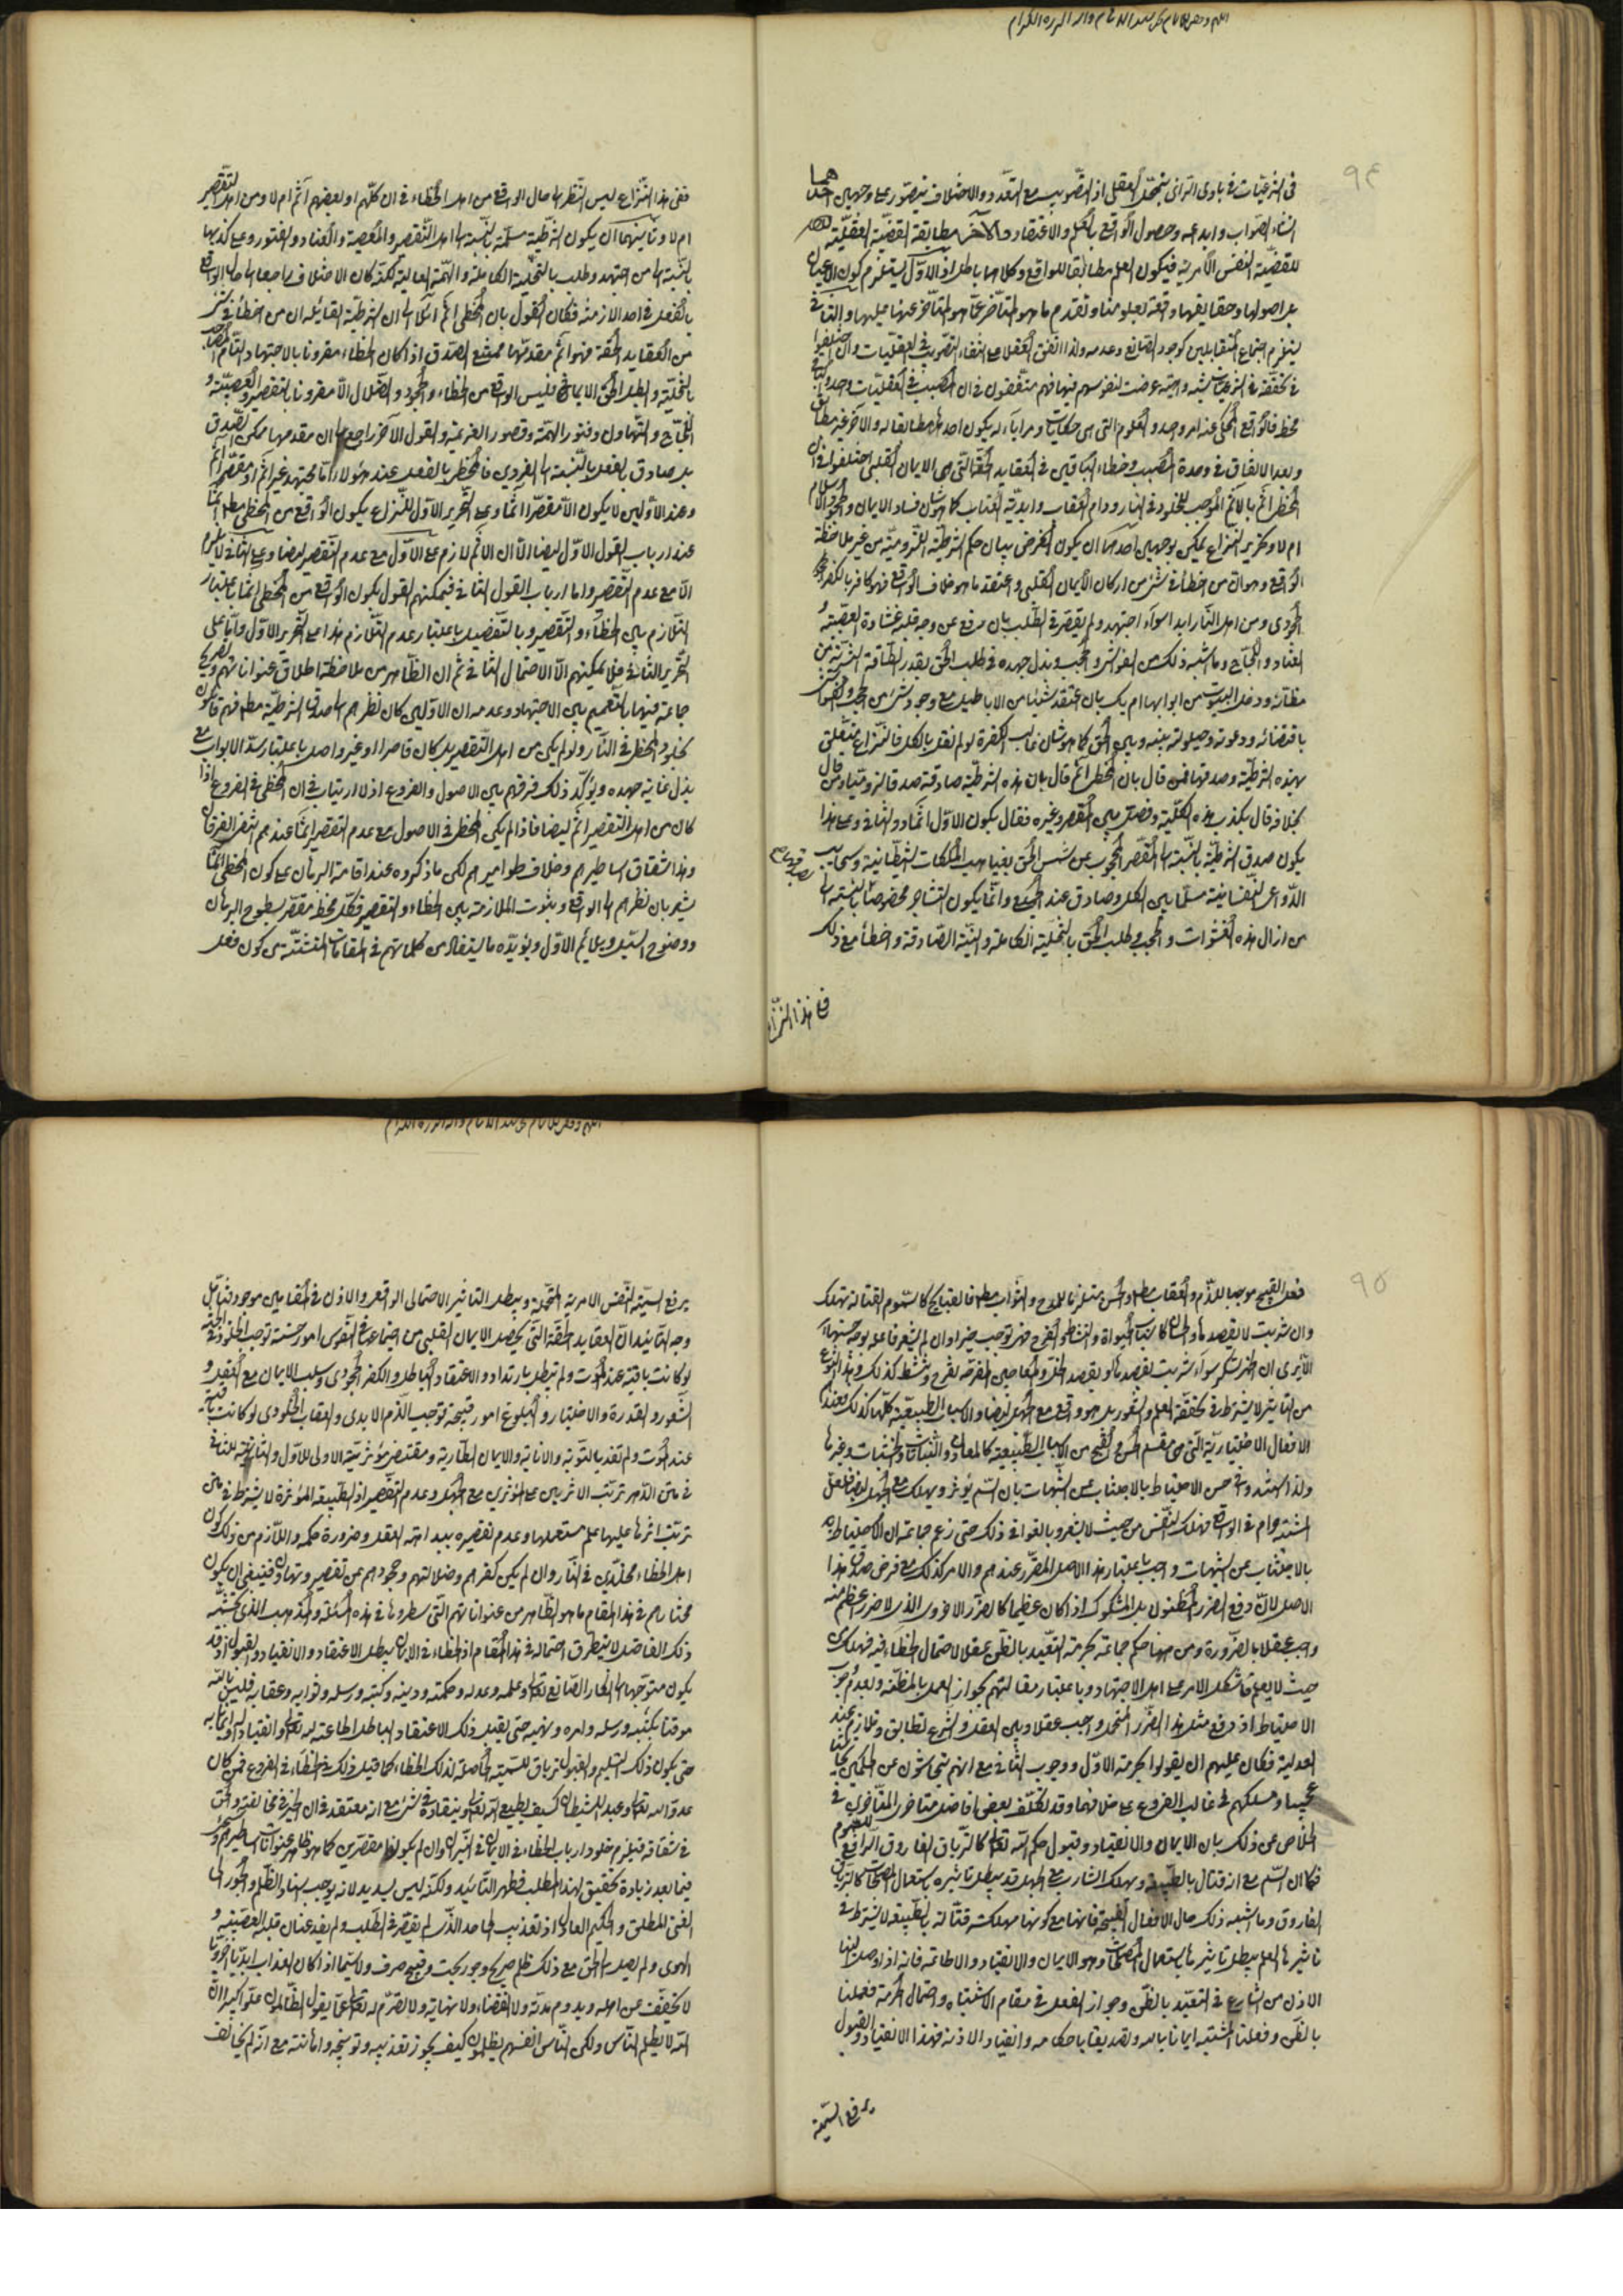 ٩٤
في الشرعيات في بادى الراى يتخيل العقل اذ التصويب مع التعدد والاختلاف يتصور على وجهين احدهما
انشاء الصواب وابداعه وحصول الواقع بالعلم والاعتقاد والآخر مطابقة القضية العقلية
للقضية النفس الامرية فيكون العلم مطابقا للواقع وكلاهما باطل اذ الاول يستلزم كون الاعيان
بل اصولها وحقايقها واقعة بعلومنا وتقدم ما هو المتاخر عما هو المتاخر عنها عليها والثاني
يستلزم اجتماع المتقابلين كوجود الصانع وعدمه ولذا اتفق العقلاء على انتفاء التصويب في العقليات وان اختلفوا
في تحققه في الشرعيات لشبهة واهية عرضت لنفوسهم فيها فهم متفقون في ان المصيب في العقليات واحد والباقي
مخطئ فالواقع المحكي عنه امر واحد والعلوم التي هي حكايات ومرايا له يكون احدها مطابقا له والآخر غير مطابق
وبعد الاتفاق في وحدة المصيب وخطاء الباقين في العقايد الحقة التي هي الايمان القلبي اختلفوا في ان
المخطئ آثم بالاثم الموجب للخلود في النار ودوام العقاب وابدية العذاب كما هو شان فساد الايمان والاسلام
ام لا وتحرير النزاع يمكن بوجهين احدهما ان يكون الغرض بيان حكم الشرطية اللزومية من غير ملاحظة
الواقع وهو ان من اخطأ في شئ من اركان الايمان القلبي واعتقد ما هو خلاف الواقع فهو كافر بالكفر
الجحودى ومن اهل النار ابدا سواء اجتهد ولم يقصر في الطلب بان رفع عن وجه قلبه غشاوة العصبية
العناد واللجاج وما اشبه ذلك من الغواشي والحجب وبذل جهده في طلب الحق بقدر الطاقة البشرية من
مظانه ودخل البيوت من ابوابها ام يك بان اعتقد شيئا من الاباطيل مع وجود شئ من الحجب والغواشي
باقتضائه ودعوته وحيلولته بينه وبين الحق كما هو شان غالب الكفرة لو لم نقل بالكل فالنزاع متعلق
بهذه الشرطية وصدقها فمن قال بان المخطئ آثم قال بان هذه الشرطية صادقة صدقا لزوميا ومن قال
بخلافه قال بكذب هذه الكلية وفصل بين المقصر وغيره فقال بكون الاول آثما دون الثاني وعلى هذا
يكون صدق الشرطية بالنسبة الى المقصر المحجوب عن شمس الحق بغياهب الملكات الشيطانية وسحايب
الدواعى النفسانية مسلما بين الكل وصادق عند الجميع وانما يكون التشاجر مخصوصا بالنسبة الى
من ازال هذه الغشوات والحجب وطلب الحق بالتخلية الكاملة والنية الصادقة واخطأ مع ذلك
ففى هذا النزاع
ففى هذا النزاع ليس النظر الى حال الواقع من اهل الخطاء في ان كلهم او بعضهم آثم ام لا ومن اهل التقصير
ام لا وثانيهما ان يكون الشرطية مسلمة بالنسبة الى اهل التقصير والمعصية والعناد والفتور وعلى كذبها
بالنسبة الى من اجتهد وطلب بالتخلية الكاملة والهمة العالية لكنه كان الاختلاف راجعا الى حال الواقع
بالفعل في احد الازمنة فكان القول بان المخطئ آثم آئلا الى ان الشرطية القايلة ان من اخطأ في شئ
من العقايد الحقة فهو آثم مقدمها ممتنع الصدق اذا كان الخطاء مقرونا بالاجتهاد التام
بالتخلية والطلب الحق الايمانى فليس الواقع من الخطاء والجحود والضلال الا مقرونا بالتقصير والعصبية و
اللجاج والتهاون وفتور الهمة وقصور العزيمة والقول الآخر راجع الى ان مقدمها ممكن الصدق
بل صادق بالفعل بالنسبة الى الفردين فالمخطئ بالفعل عند هؤلاء اما مجتهد غير آثم او مقصر آثم
وعند الاولين لا يكون الا مقصرا آثما وعلى التحرير الاول للنزاع يكون الواقع من المخطئ مطلقا آثما
عند ارباب القول الاول ايضا الا ان الاثم لازم على الاول مع عدم التقصير ايضا وعلى الثاني لا يلزم
الا مع عدم التقصير واما ارباب القول الثاني فيمكنهم القول بكون الواقع من المخطئ آثما باعتبار
التلازم بين الخطاء والتقصير وبالتفصيل باعتبار عدم التلازم هذا على التحرير الاول واما على
التحرير الثاني فلا يمكنهم الا الاحتمال الثاني ثم ان الظاهر من ملاحظة اطلاق عنواناتهم وتصريح
جماعة فيها بالتعميم بين الاجتهاد وعدمه ان الاولين كان نظرهم الى صدق الشرطية مطلقا فهم قائلون
بخلود المخطئ في النار ولو لم يكن من اهل التقصير بل كان قاصرا او غير واصل باعتبار سد الابواب مع
بذل غاية جهده ويؤكد ذلك فرقهم بين الاصول والفروع اذ لا ارتياب في ان المخطئ في الفروع اذا
كان من اهل التقصير آثم ايضا فاذا لم يكن المخطئ في الاصول مع عدم التقصير آثما عندهم انتفى الفرق
وهذا شقاق اساطيرهم وخلاف طواميرهم لكن ما ذكروه عند اقامة البرهان على كون المخطئ آثما
يشعر بان نظرهم الى الواقع وبثبوت الملازمة بين الخطاء والتقصير فكل مخطئ مقصر بسطوح البرهان
ووضوح السبيل ويلائم الاول ويؤيده ما يستفاد من كلماتهم في المقامات المتشتتة من كون فعل
٩٥
فعل القبيح موجبا للذم والعقاب مطلقا والحسن مستلزما للمدح والثواب مطلقا فالقبايح كالسموم القتالة تهلك
وان شربت لا بقصدها والحسان كاسباب الحيوة والنشاط والفرح خير توجب خيرا وان لم يشعر فاعله بوجه حسنها
الا يرى ان الخمر تسكر سواء شربت بقصدها او بقصد الخل والمعاجين المفرحة تفرح وتنشط كذلك وهذا النوع
من التاثير لا يشترط في تحققه العلم والشعور بل هو واقع مع الجهل ايضا والاسباب الطبيعية كلها كذلك فعند
الافعال الاختيارية التي هي مقسم الحسن والقبح من الاسباب الطبيعية كالمعادن والنباتات والخشبات وغيرها
ولذا استند في حسن الاحتياط بالاجتناب عن الشبهات بان السم يؤثر ويهلك مع الجهل ايضا فلعل
المشتبه حرام في الواقع فتهلك النفس من حيث لا يشعر وبالغوا في ذلك حتى زعم جماعة ان الاحتياط
بالاجتناب عن الشبهات واجب باعتبار هذا الاصل المقرر عندهم والامر كذلك مع فرض صدق هذا
الاصل لان دفع الضرر المظنون بل المشكوك اذا كان عظيما كالضرر الاخروى الذى لا ضرر اعظم منه
واجب عقلا بالضرورة ومن هنا حكم جماعة بحرمة التعبد بالظن عقلا لاحتمال الخطاء فيه فيهلك من
حيث لا يعلم فاشكل الامر على اهل الاجتهاد وباعتبار مقالتهم بجواز العمل بالمظنة وبعدم وجوب
الاحتياط اذ دفع مثل هذا الضرر المتحمل واجب عقلا وبين العقل والشرع تطابق وتلازم عند
العدلية فكان عليهم ان يقولوا بحرمة الاول ووجوب الثاني مع انهم يتحاشون عن الحكمين
عجيبا ومسلكهم في غالب الفروع على خلافهما وقد تكلف بعض افاضل متاخرى المتاخرين في
الخلاص عن ذلك بان الايمان والانقياد وقبول حكم الله تعالى كالترياق الفاروق الرافع للسموم
فكما ان السم مع انه قتال بالطبيعة ومهلك الشارب مع الجهل قد يبطل تاثيره باستعمال المصلحات كالترياق
الفاروق وما اشبهه ذلك حال الافعال القبيحة فانها مع كونها مهلكة قتالة بالطبيعة لا يشترط في
تاثيرها العلم يبطل تاثيرها باستعمال المصلحات وهو الايمان والانقياد والاطاعة فانه اذا وصل الينا
الاذن من الشارع في التعبد بالظن وجواز الفعل في مقام الاشتباه واحتمال الحرمة فعملنا
بالظن وفعلنا المشتبه ايمانا بالله وتصديقا باحكامه وانقيادا لاذنه فهذا الانقياد والقبول
يرفع السمية
يرفع السمية النفس الامرية المتحملة ويبطل التاثير الاحتمالى الواقعى والاذن في المقامين موجود فتأمل
وجه التائيد ان العقايد الحقة التي يحصل الايمان القلبي من اجتماعها في النفوس امور حسنة توجب الخلود في الجنة
لو كانت باقية عند الموت ولم تبطل بارتداد والاعتقاد الباطل والكفر الجحودى وسلب الايمان مع العقل و
الشعور والقدرة والاختيار والبلوغ امور قبيحة توجب الذم الابدى والعقاب الخلودى لو كانت باقية
عند الموت ولم تفد بالتوبة والانابة والايمان الطارية ومقتضى مؤثرية الاولى للاول والثانية للثاني
في متن الدهر ترتب الاثرين على المؤثرين مع الجهل وعدم التقصير اذ الطبيعة المؤثرة لا يشترط في
ترتب اثرها عليها علم مستعملها وعدم تقصيره ببداهة العقل وضرورة حكمه واللازم من ذلك كون
اهل الخطاء مخلدين في النار وان لم يكن كفرهم وضلالتهم وجحودهم عن تقصير وتهاون فينبغي ان يكون
مختارهم في هذا المقام ما هو الظاهر من عنواناتهم التي سطروها في هذه المسئلة والمذهب الذى تجشمه
ذلك الفاضل لا يتطرق احتماله في هذا المقام اذ الخطاء في الايمان يبطل الاعتقاد والانقياد والقبول اذ قد
يكون متوجها الى انكار الصانع تعالى وعلمه وعدله وحكمته ودينه وكتبه ورسله وثوابه وعقابه فليس بالله
موقنا بكتبه ورسله وامره ونهيه حتى يقبل ذلك الاعتقاد الباطل اطاعة له تعالى وانقيادا له وايمانا به
حتى يكون ذلك التسليم والقبول ترياقا للسمية الحاصلة لذلك الخطاء كما قيل ذلك في الخطاء في الفروع فمن كان
عدوا لله تعالى وعبدا للشيطان كيف يطيع الله تعالى وينقاد في شئ مع انه معتقد في ان الخير في مخالفته والحق
في شقاقه فيلزم خلود ارباب الخطاء في الايمان في النيران وان لم يكونوا مقصرين كما هو ظاهر عنوانات اساطيرهم وستجئ
فيما بعد زيادة تحقيق لهذا المطلب فظهر التائيد ولكنه ليس بسديد لانه يوجب اسناد الظلم والجور الى
الغنى المطلق والحكيم العادل اذ تعذيب الجاحد الذى لم يقصر في الطلب ولم يقد عنان قلبه العصبية و
الهوى ولم يصل الى الحق مع ذلك ظلم صريح وجور بحت وقبيح صرف ولا سيما اذا كان العذاب ابديا
لا تخفف عن اهله ويدوم مدته ولا انقضاء ولا نهاية ولا تصرم له تعالى عما يقول الظالمون علوا كبيرا ان
الله لا يظلم الناس ولكن الناس انفسهم يظلمون كيف يجوز تعذيبه وتوبيخه واهانته مع انه لم يخالف